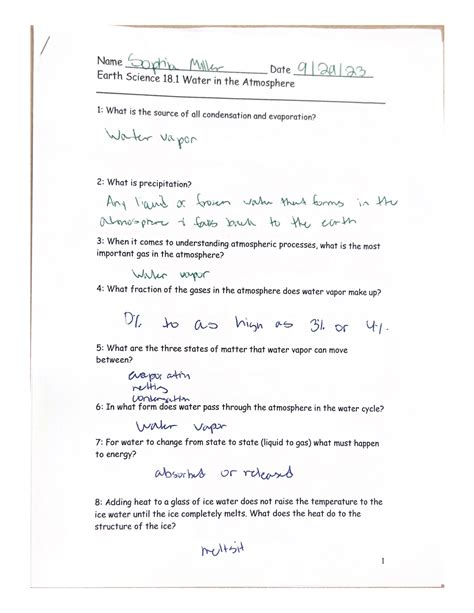 Name Sophia Miller Date 9/29/23
Earth Science 18.1 Water in the Atmosphere
1: What is the source of all condensation and evaporation?
Water vapor
2: What is precipitation?
Any liquid or frozen water that forms in the
atmosphere & falls back to the earth
3: When it comes to understanding atmospheric processes, what is the most
important gas in the atmosphere?
Water vapor
4: What fraction of the gases in the atmosphere does water vapor make up?
0% to as high as 3% or 4%.
5: What are the three states of matter that water vapor can move
between?
evaporation
melting
condensation
6: In what form does water pass through the atmosphere in the water cycle?
Water vapor
7: For water to change from state to state (liquid to gas) what must happen
to energy?
absorbed or released
8: Adding heat to a glass of ice water does not raise the temperature to the
ice water until the ice completely melts. What does the heat do to the
structure of the ice?
meltsit
1